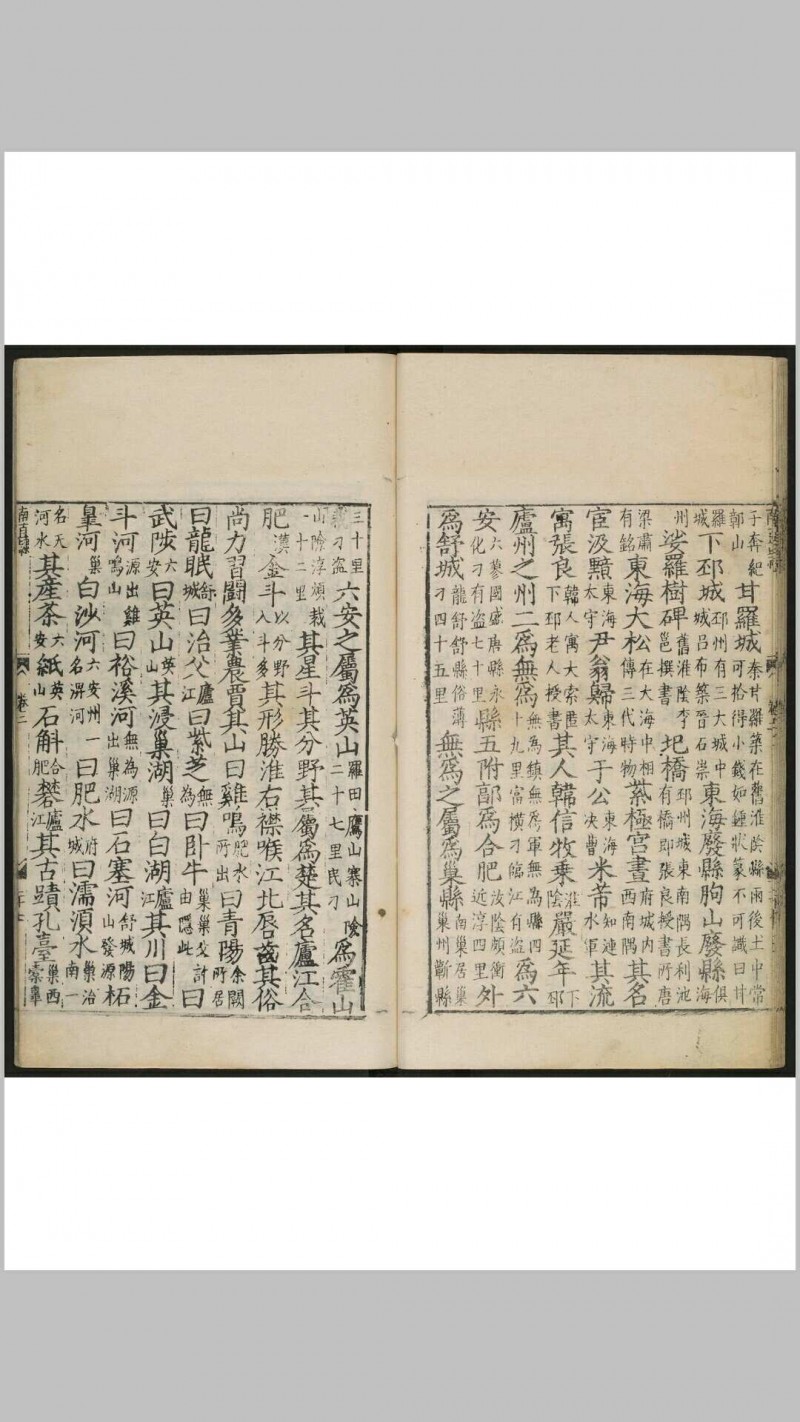 子奔紀郭山甘羅城秦甘羅築在舊淮陰縣雨後土中常可拾得小錢如鍾狀篆不可識曰甘
羅城下邳城邳州有三大城中城呂布築晉石崇東海廢縣朐山廢縣俱海
州娑羅樹碑舊淮陰李邕撰書圯橋邳州城東南隅長利池有橋即張良授書所唐
梁肅有銘東海大松在大海中相傳三代時物紫極宮畫府城内西南隅其名
宦汲黯東海太守尹翁歸東海太守于公東海決曹米芾知漣水軍其流
寓張良韓人寓大索匿下邳老人授書其人韓信牧乗淮陰嚴延年下邳
廬州之州二爲無爲無為鎮無為軍無為縣四十九里富横刁臨江有盗爲六
安六蓼國盛唐縣永化刁有盗七十里縣五附郭爲合肥汝陰頗衝近淳四里外
爲舒城龍舒舒縣俗薄刁四十五里無爲之屬爲巢縣南巢居巢巢州蘄縣
三十里刁盗六安之屬爲英山羅田鷹山寨山險二十七里民刁爲霍山
山險淳頑一十二里裁其星斗其分野其屬爲楚其名廬江合
肥漠金斗以分野入斗多其形勝淮右襟喉江北唇齒其俗
尚力習鬬多業農賈其山曰雞鳴肥水所出曰青陽余闕所居
曰龍眠舒城曰治父廬江曰紫芝無為曰卧牛巢巢父許由隱此曰
武陟六安曰英山英山其浸巢湖巢曰白湖廬江其川曰金
斗河源出雞鳴山曰裕溪河無為源出巢湖曰石塞河舒城陽山發源柘
臯河巢白沙河六安州一名淠河曰肥水府城曰濡須水巢治南一
名天河水其産茶六安紙英山石斛合肥礬廬江其古蹟孔臺巢西橐臯
南直隸 卷二